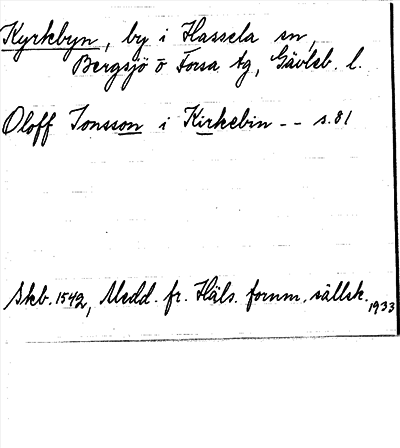 Kyrkebyn, by i Hassela sn,
Bergsjö o Forsa tg, Gävleb. l.
Oloff Jonsson i Kirkebin -- s. 81
Skb. 1542, Medd. fr. Häls. fornm. sällsk. 1933